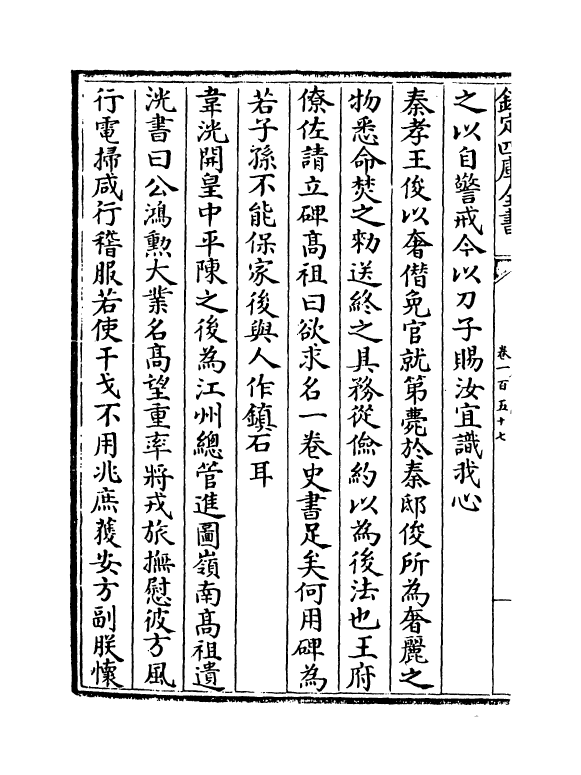 欽定四庫全書
卷一百五十七
之以自警戒今以刀子賜汝宜識我心
秦孝王俊以奢僭免官就第薨於秦邸俊所為奢麗之
物悉命焚之勑送終之具務從儉約以為後法也王府
僚佐請立碑髙祖曰欲求名一卷史書足矣何用碑為
若子孫不能保家後與人作鎮石耳
韋洸開皇中平陳之後為江州總管進圖嶺南髙祖遺
洸書曰公鴻勲大業名髙望重率將戎旅撫慰彼方風
行電掃咸行稽服若使干戈不用兆庶獲安方副朕懷